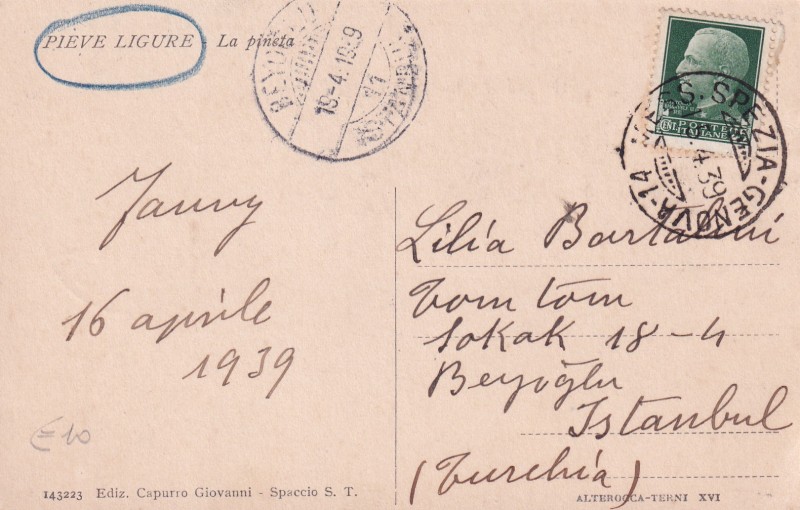 PIEVE LIGURE - La pineta
BEYOĞLU
18-4.1939
11
ISTANBUL
POSTE ITALIANE
CENT
AMB. SPEZIA-GENOVA-14
4.39
Janny
16 aprile
1939
Lilia Bartalini
Tom tom
sokak 18-4
Beyoğlu
Istanbul
(Turchia)
€10
143223 Ediz. Capurro Giovanni - Spaccio S. T.
ALTEROCCA-TERNI XVI